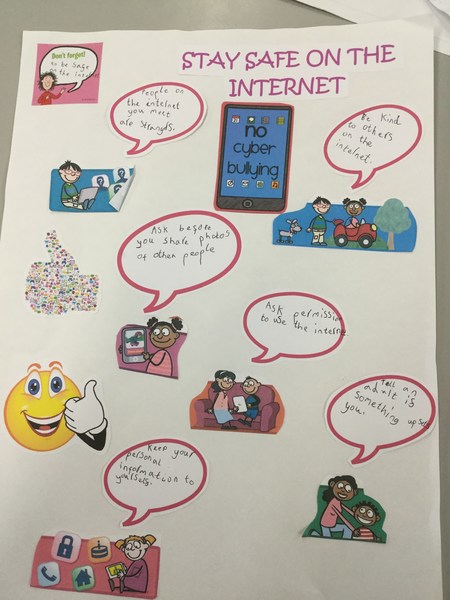 Don't forget!
to be safe
on the internet
STAY SAFE ON THE
INTERNET
People on
the internet
you meet
are strangers.
no
cyber
bullying
Be kind
to others
on the
internet.
Ask before
you share photos
of other people
Ask permission
to use the internet
Tell an
adult is
something upsets
you.
Keep your
personal
information to
yourself.